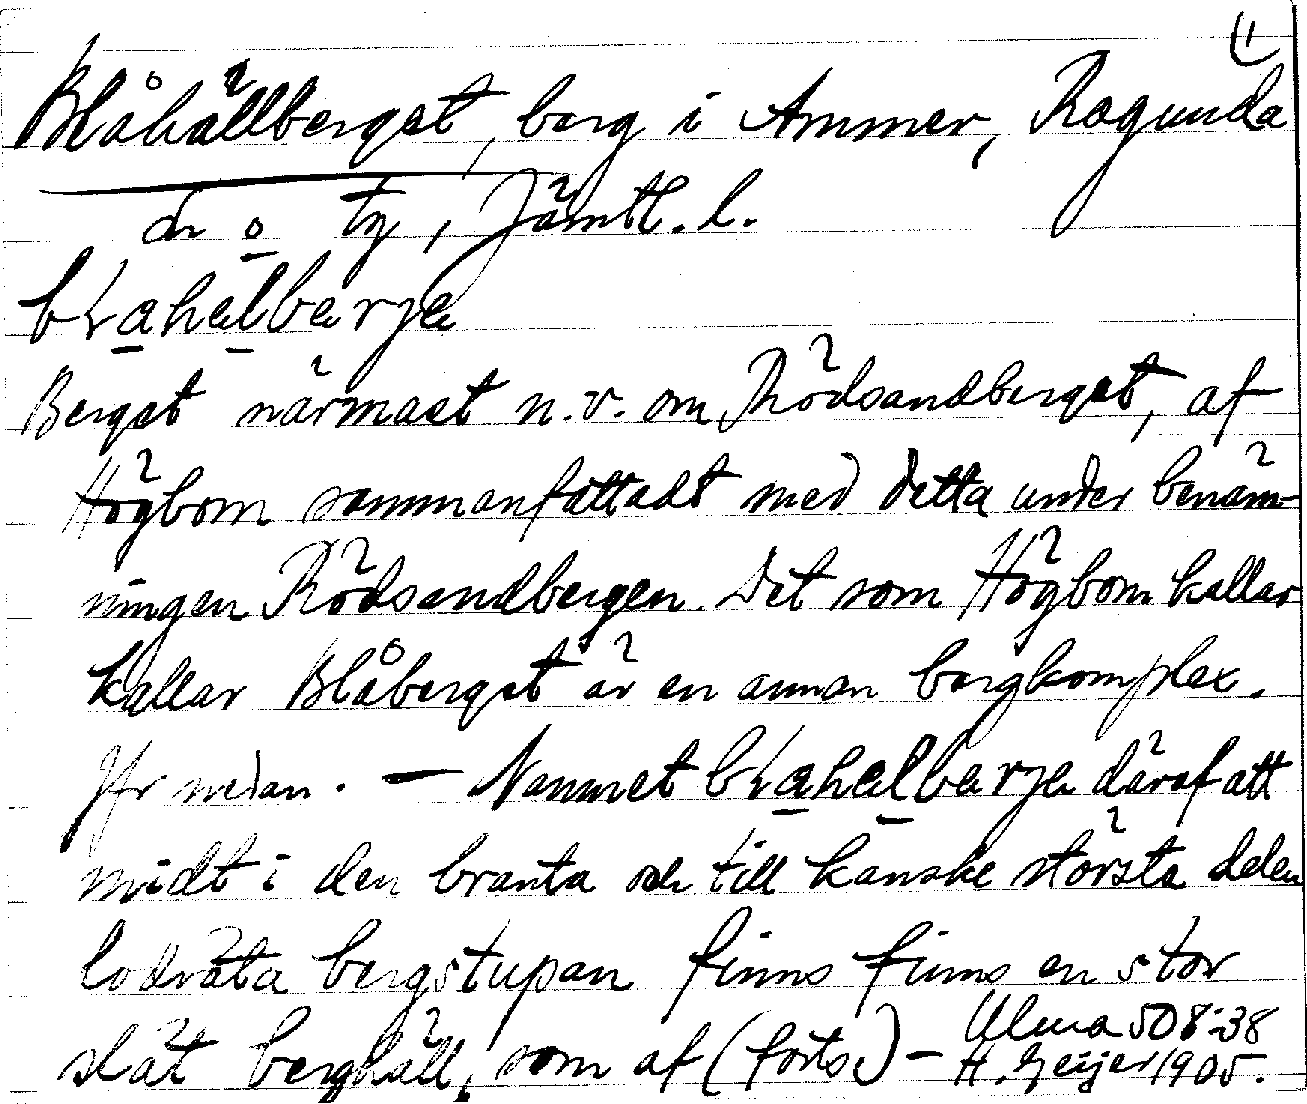 (1
Blåhällberget, berg i Ammer, Ragunda
sn o tg, Jämtl. l.
bLahälbærje
Berget närmast n.v. om Rödsandberget, af
Högbom sammanfattadt med detta under benäm-
ningen Rödsandbergen. Det som Högbom kallar
kallar Blåberget är en annan bergkomplex.
Jfr nedan. — Namnet bLahälbærje däraf att
midt i den branta och till kanske största delen
lodräta bergstupan finns finns en stor
slät berghäll, som af (forts.) –
Ulma 508:38
H. Geijer 1905.